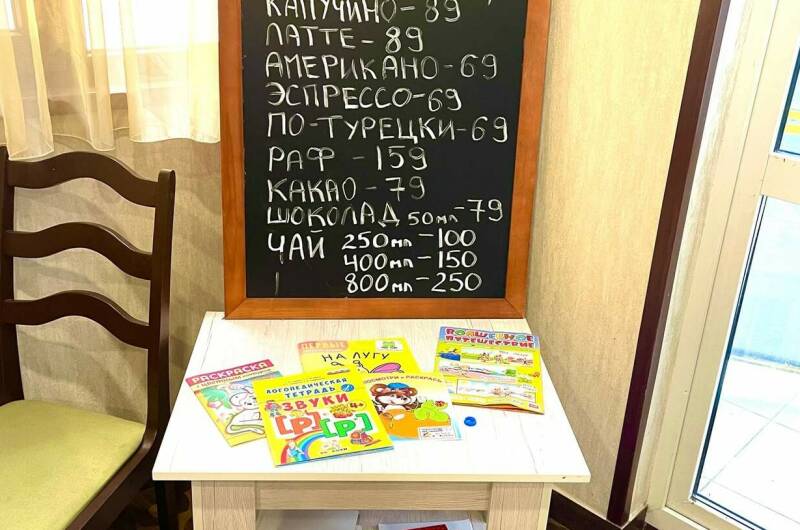 КАПУЧИНО-89
ЛАТТЕ-89
АМЕРИКАНО-69
ЭСПРЕССО-69
ПО-ТУРЕЦКИ-69
РАФ-159
КАКАО-79
ШОКОЛАД 50мл-79
ЧАЙ 250мл-100
400мл-150
800мл-250
ПЕРВЫЕ
НА ЛУГУ
ВОЛШЕБНОЕ
ПУТЕШЕСТВИЕ
РАСКРАСКА
ПОСМОТРИ и РАСКРАСЬ
ЛОГОПЕДИЧЕСКАЯ
ТЕТРАДЬ
ЗВУКИ 4+
[Р] [Р']